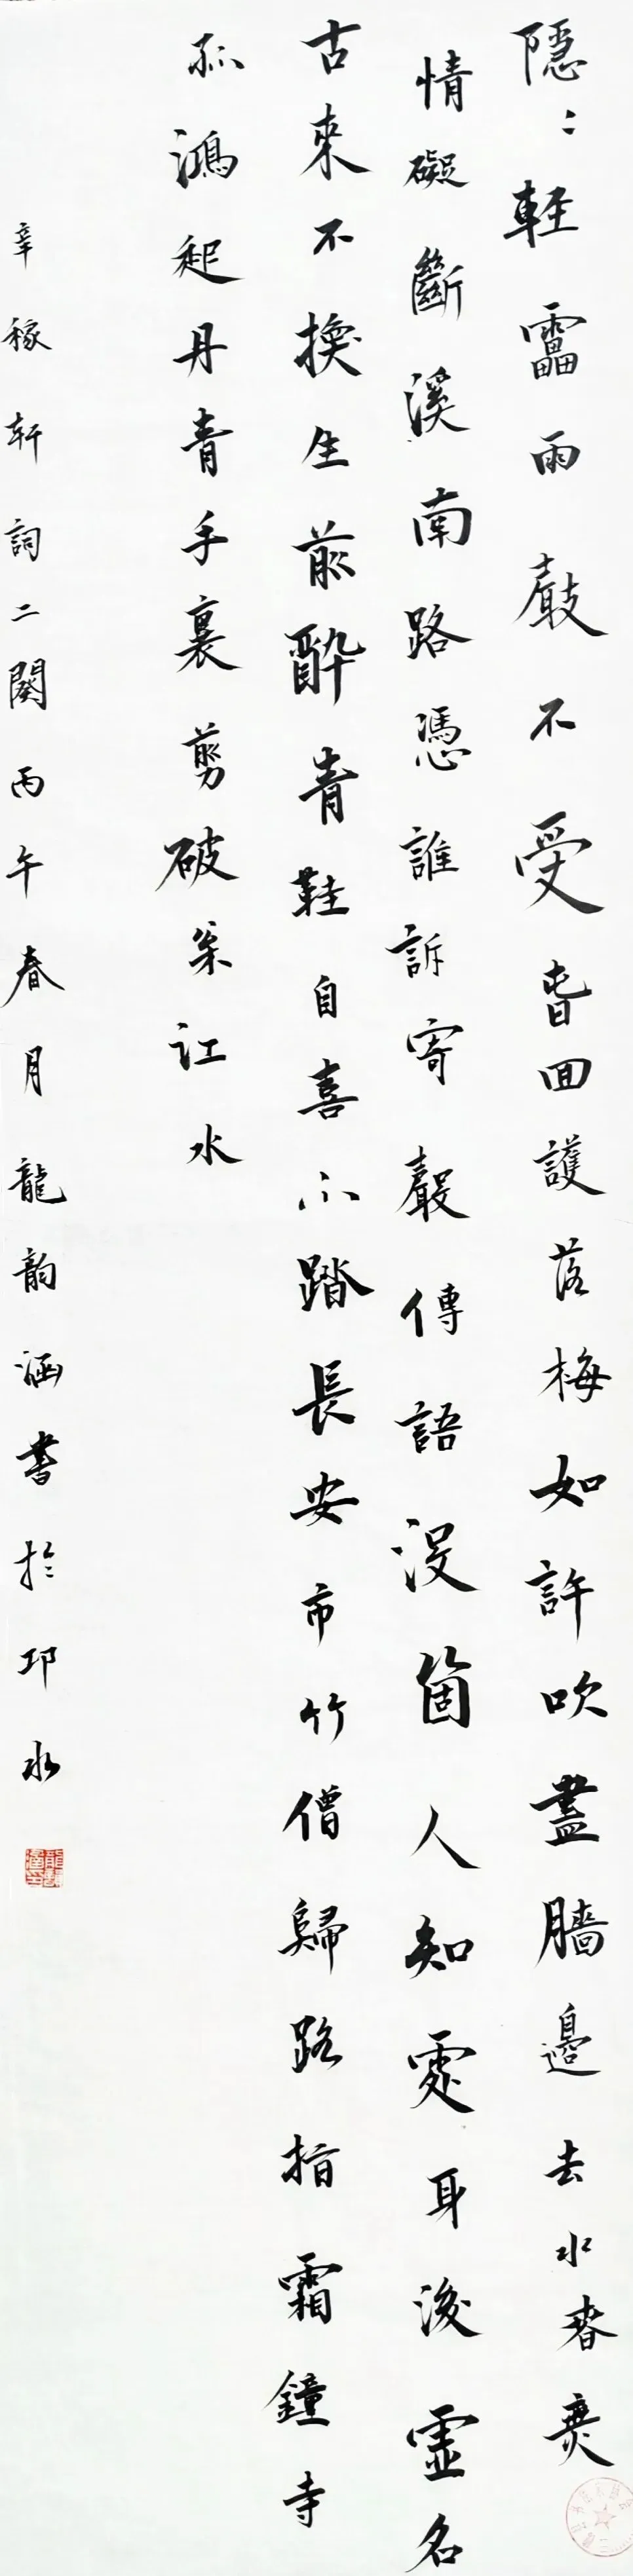 隱〻輕靁雨聲不受旾回護落梅如許吹盡牆邊去水春無
情礙斷溪南路憑誰訴寄聲傳語沒箇人知處身後虛名
古來不換生前醉青鞋自喜不踏長安市竹僧歸路指霜鐘寺
孤鴻起丹青手裏剪破枀江水
辛稼軒詞二闋丙午春月龍韵涵書於邛水